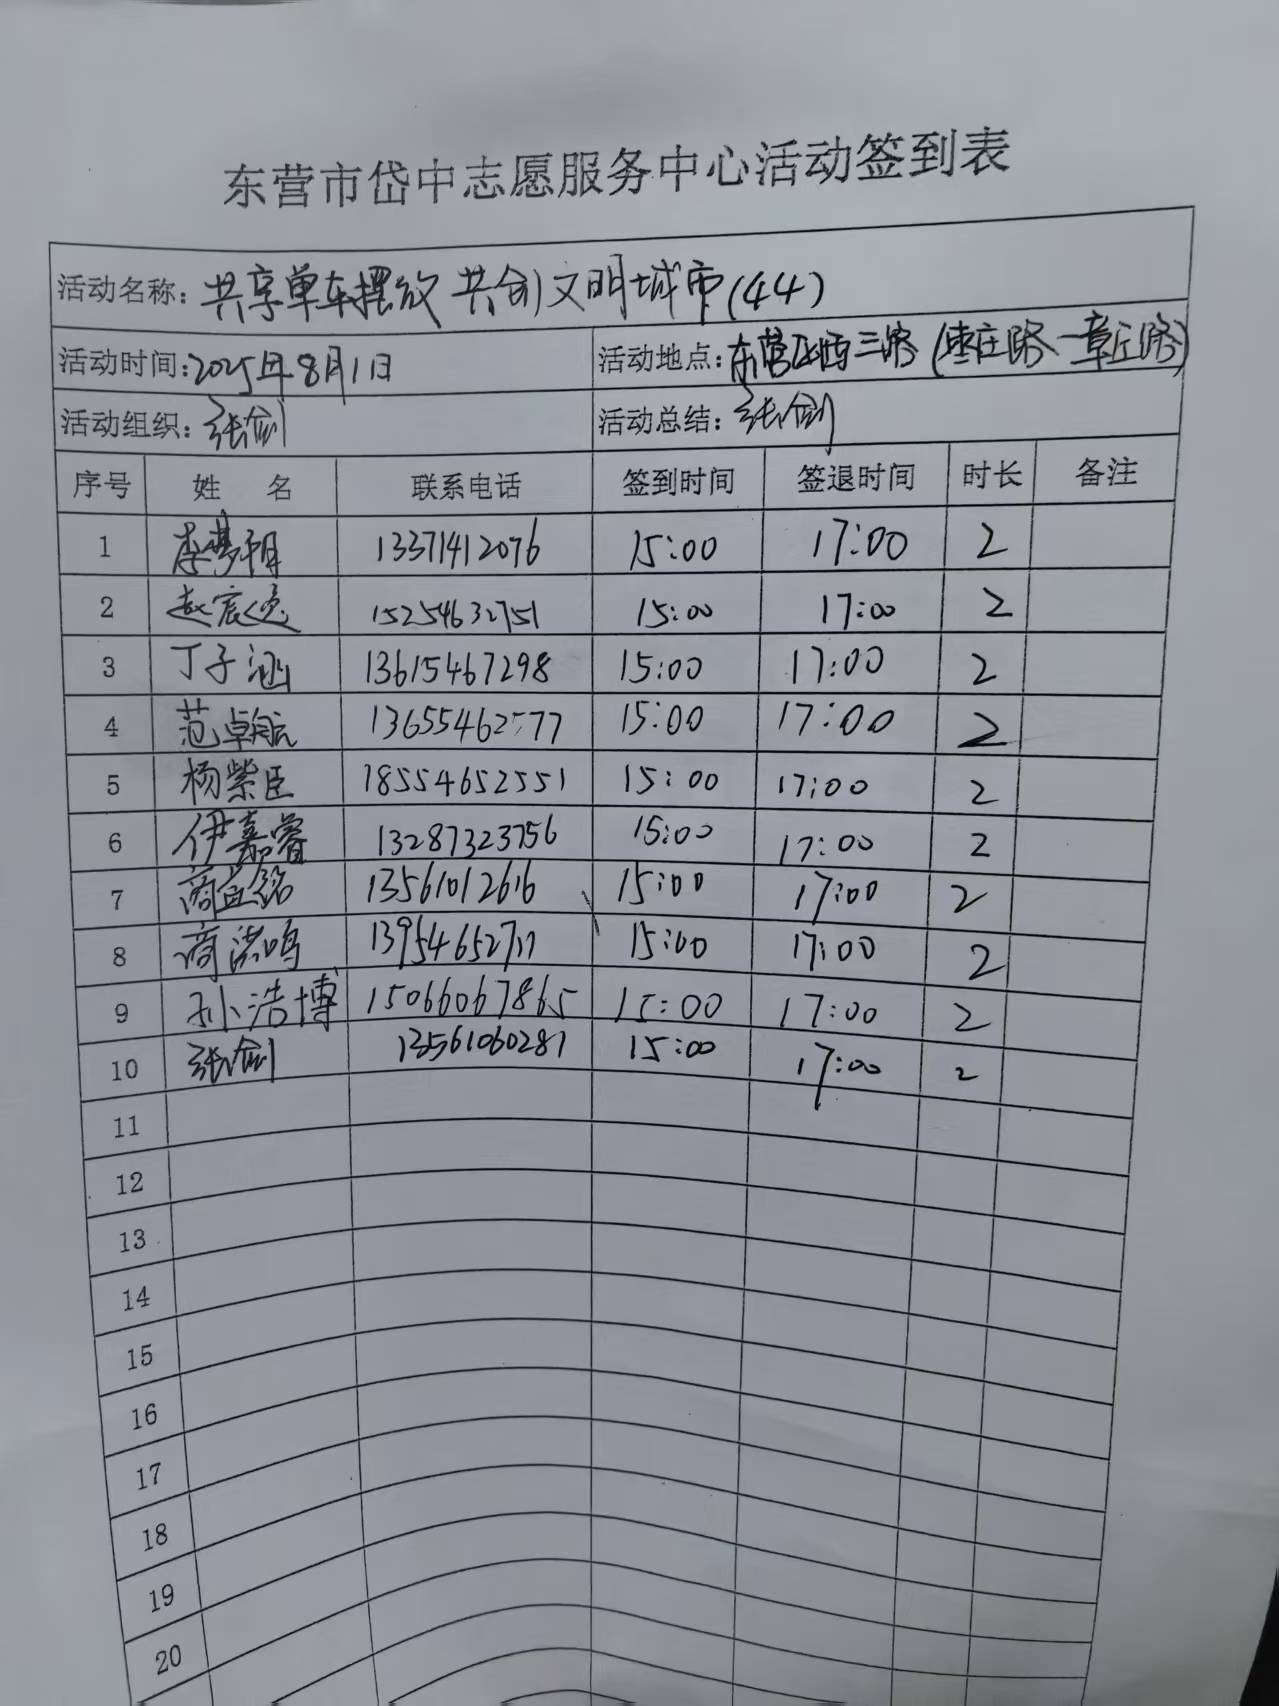 东营市岱中志愿服务中心活动签到表
活动名称：共享单车摆放 共创文明城市（44）
活动时间：2025年8月1日 活动地点：东营区西三路（枣庄路—章丘路）
活动组织：张剑 活动总结：张剑
序号 姓名 联系电话 签到时间 签退时间 时长 备注
1 李梦 13371412076 15:00 17:00 2
2 赵宸逸 15254632751 15:00 17:00 2
3 丁子涵 13615467298 15:00 17:00 2
4 范卓航 13655462577 15:00 17:00 2
5 杨紫臣 18554652551 15:00 17:00 2
6 伊嘉睿 13287323756 15:00 17:00 2
7 商益铭 13561012616 15:00 17:00 2
8 商浩鸣 15:00 17:00 2
9 孙浩博 15066067865 15:00 17:00 2
10 张剑 13561060281 15:00 17:00 2
11
12
13
14
15
16
17
18
19
20